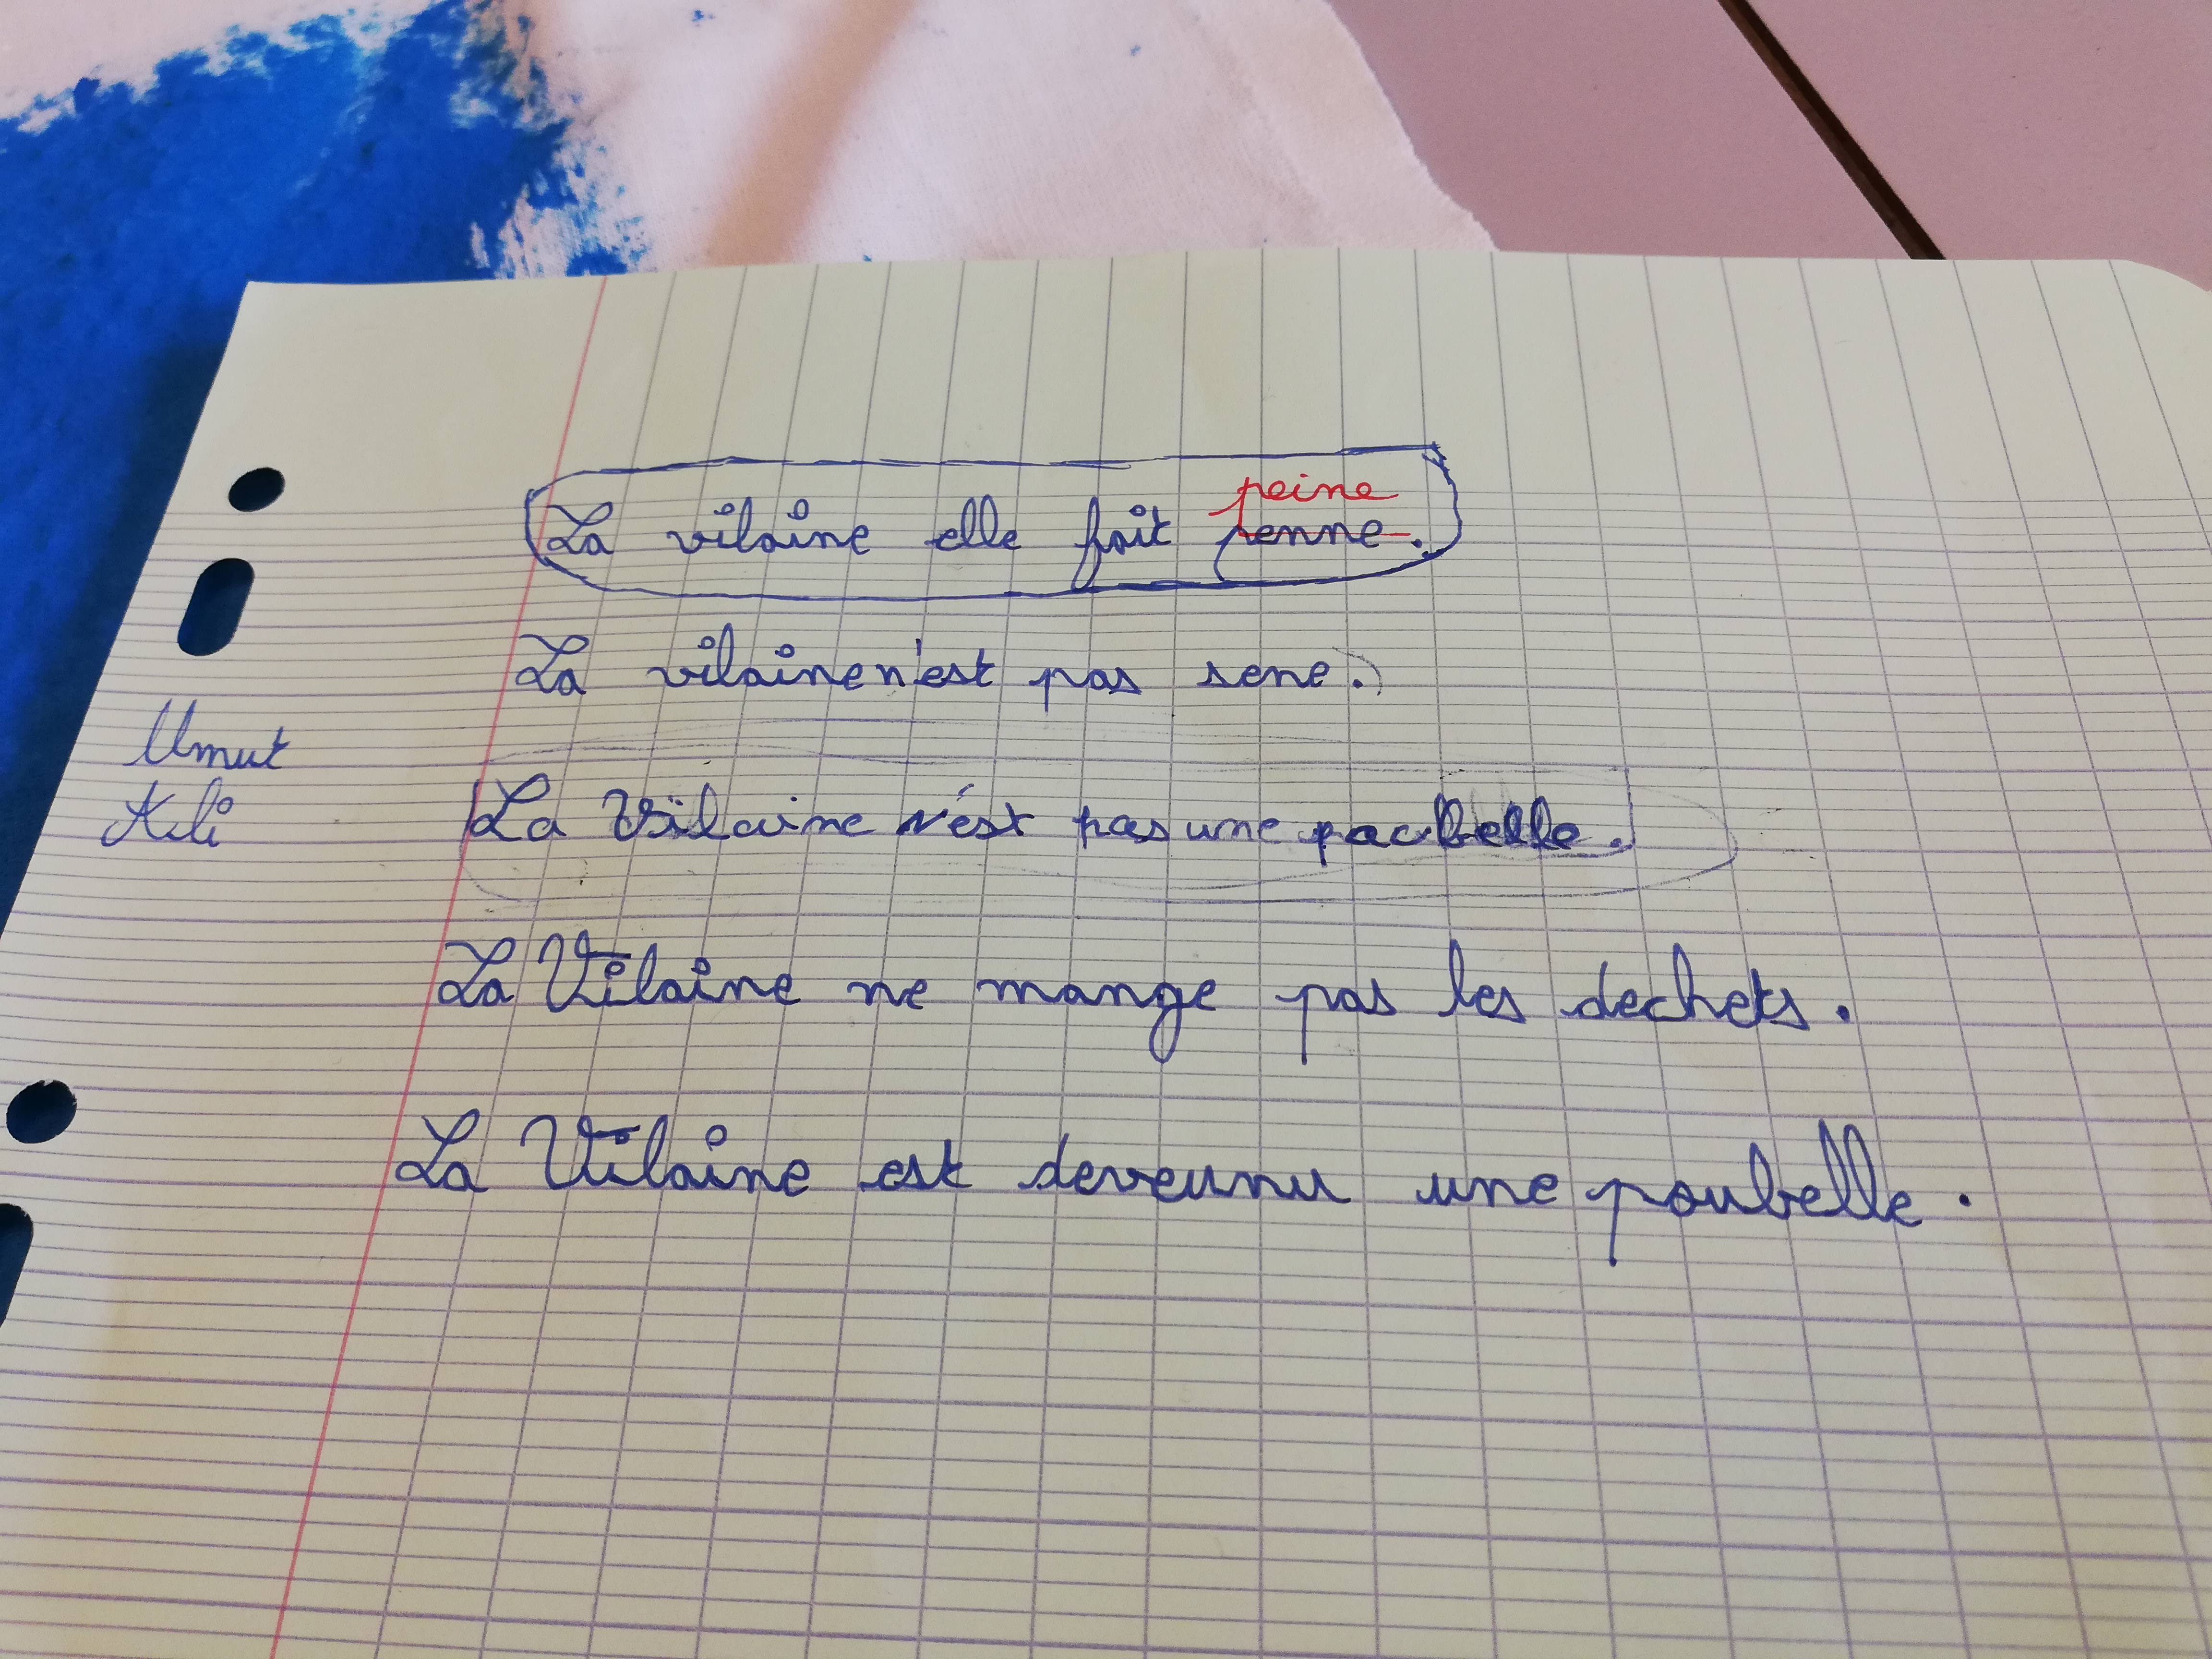 peine
La vilaine elle fait penne.
La vilaine n'est pas sene.
Umut
Kili
La Vilaine n'est pas une pacbelle.
La Vilaine ne mange pas les dechets.
La Vilaine est deveunu une poubelle.